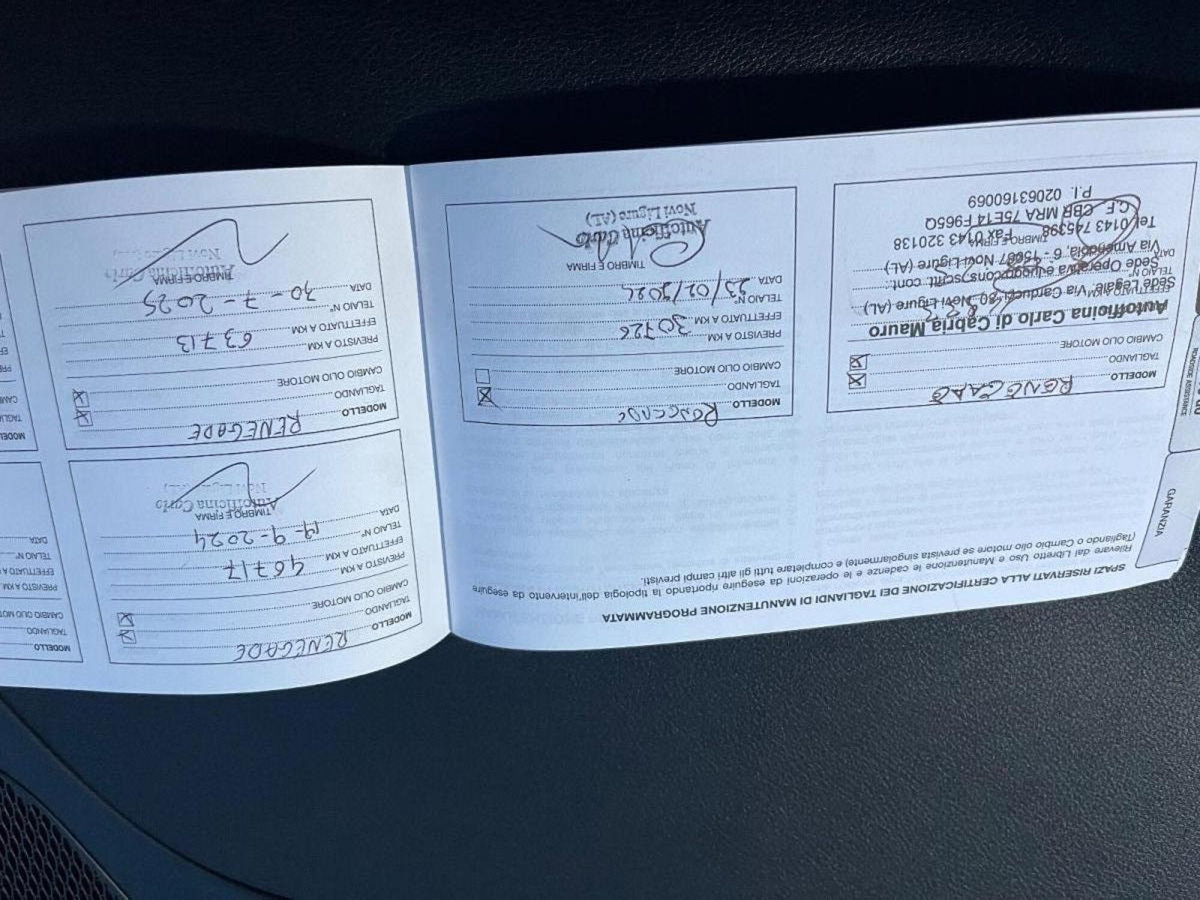 GARANZIA
ROADSIDE ASSISTANCE
SPAZI RISERVATI ALLA CERTIFICAZIONE DEI TAGLIANDI DI MANUTENZIONE PROGRAMMATA
Rilevare dal Libretto Uso e Manutenzione le cadenze e le operazioni da eseguire riportando la tipologia dell'intervento da eseguire
(Tagliando o Cambio olio motore se prevista singolarmente) e completare tutti gli altri campi previsti.
MODELLO
TAGLIANDO
CAMBIO OLIO MOTORE
Autofficina Carlo di Cabria Mauro
Sede Legale: Via Carducci, 80 Novi Ligure (AL)
Sede Operativa e luogo cons. scritt. cont.:
Via Amendola, 6 - 15067 Novi Ligure (AL)
Tel. 0143 745398 Fax 0143 320138
C.F. CBR MRA 75E14 F965Q
P.I. 02063160069
MODELLO
TAGLIANDO
CAMBIO OLIO MOTORE
PREVISTO A KM
EFFETTUATO A KM 30726
TELAIO N°
DATA 23/02/2024
TIMBRO E FIRMA
Autofficina Carlo
Novi Ligure (AL)
MODELLO RENEGADE
TAGLIANDO
CAMBIO OLIO MOTORE
PREVISTO A KM
EFFETTUATO A KM 46717
TELAIO N°
DATA 19-9-2024
TIMBRO E FIRMA
Autofficina Carlo
MODELLO RENEGADE
TAGLIANDO
CAMBIO OLIO MOTORE
PREVISTO A KM
EFFETTUATO A KM 63713
TELAIO N°
DATA 30-7-2025
TIMBRO E FIRMA
Autofficina Carlo
Novi Ligure
MODELLO
TAGLIANDO
CAMBIO OLIO MOT
PREVISTO A KM
EFFETTUATO A
TELAIO N°
DATA